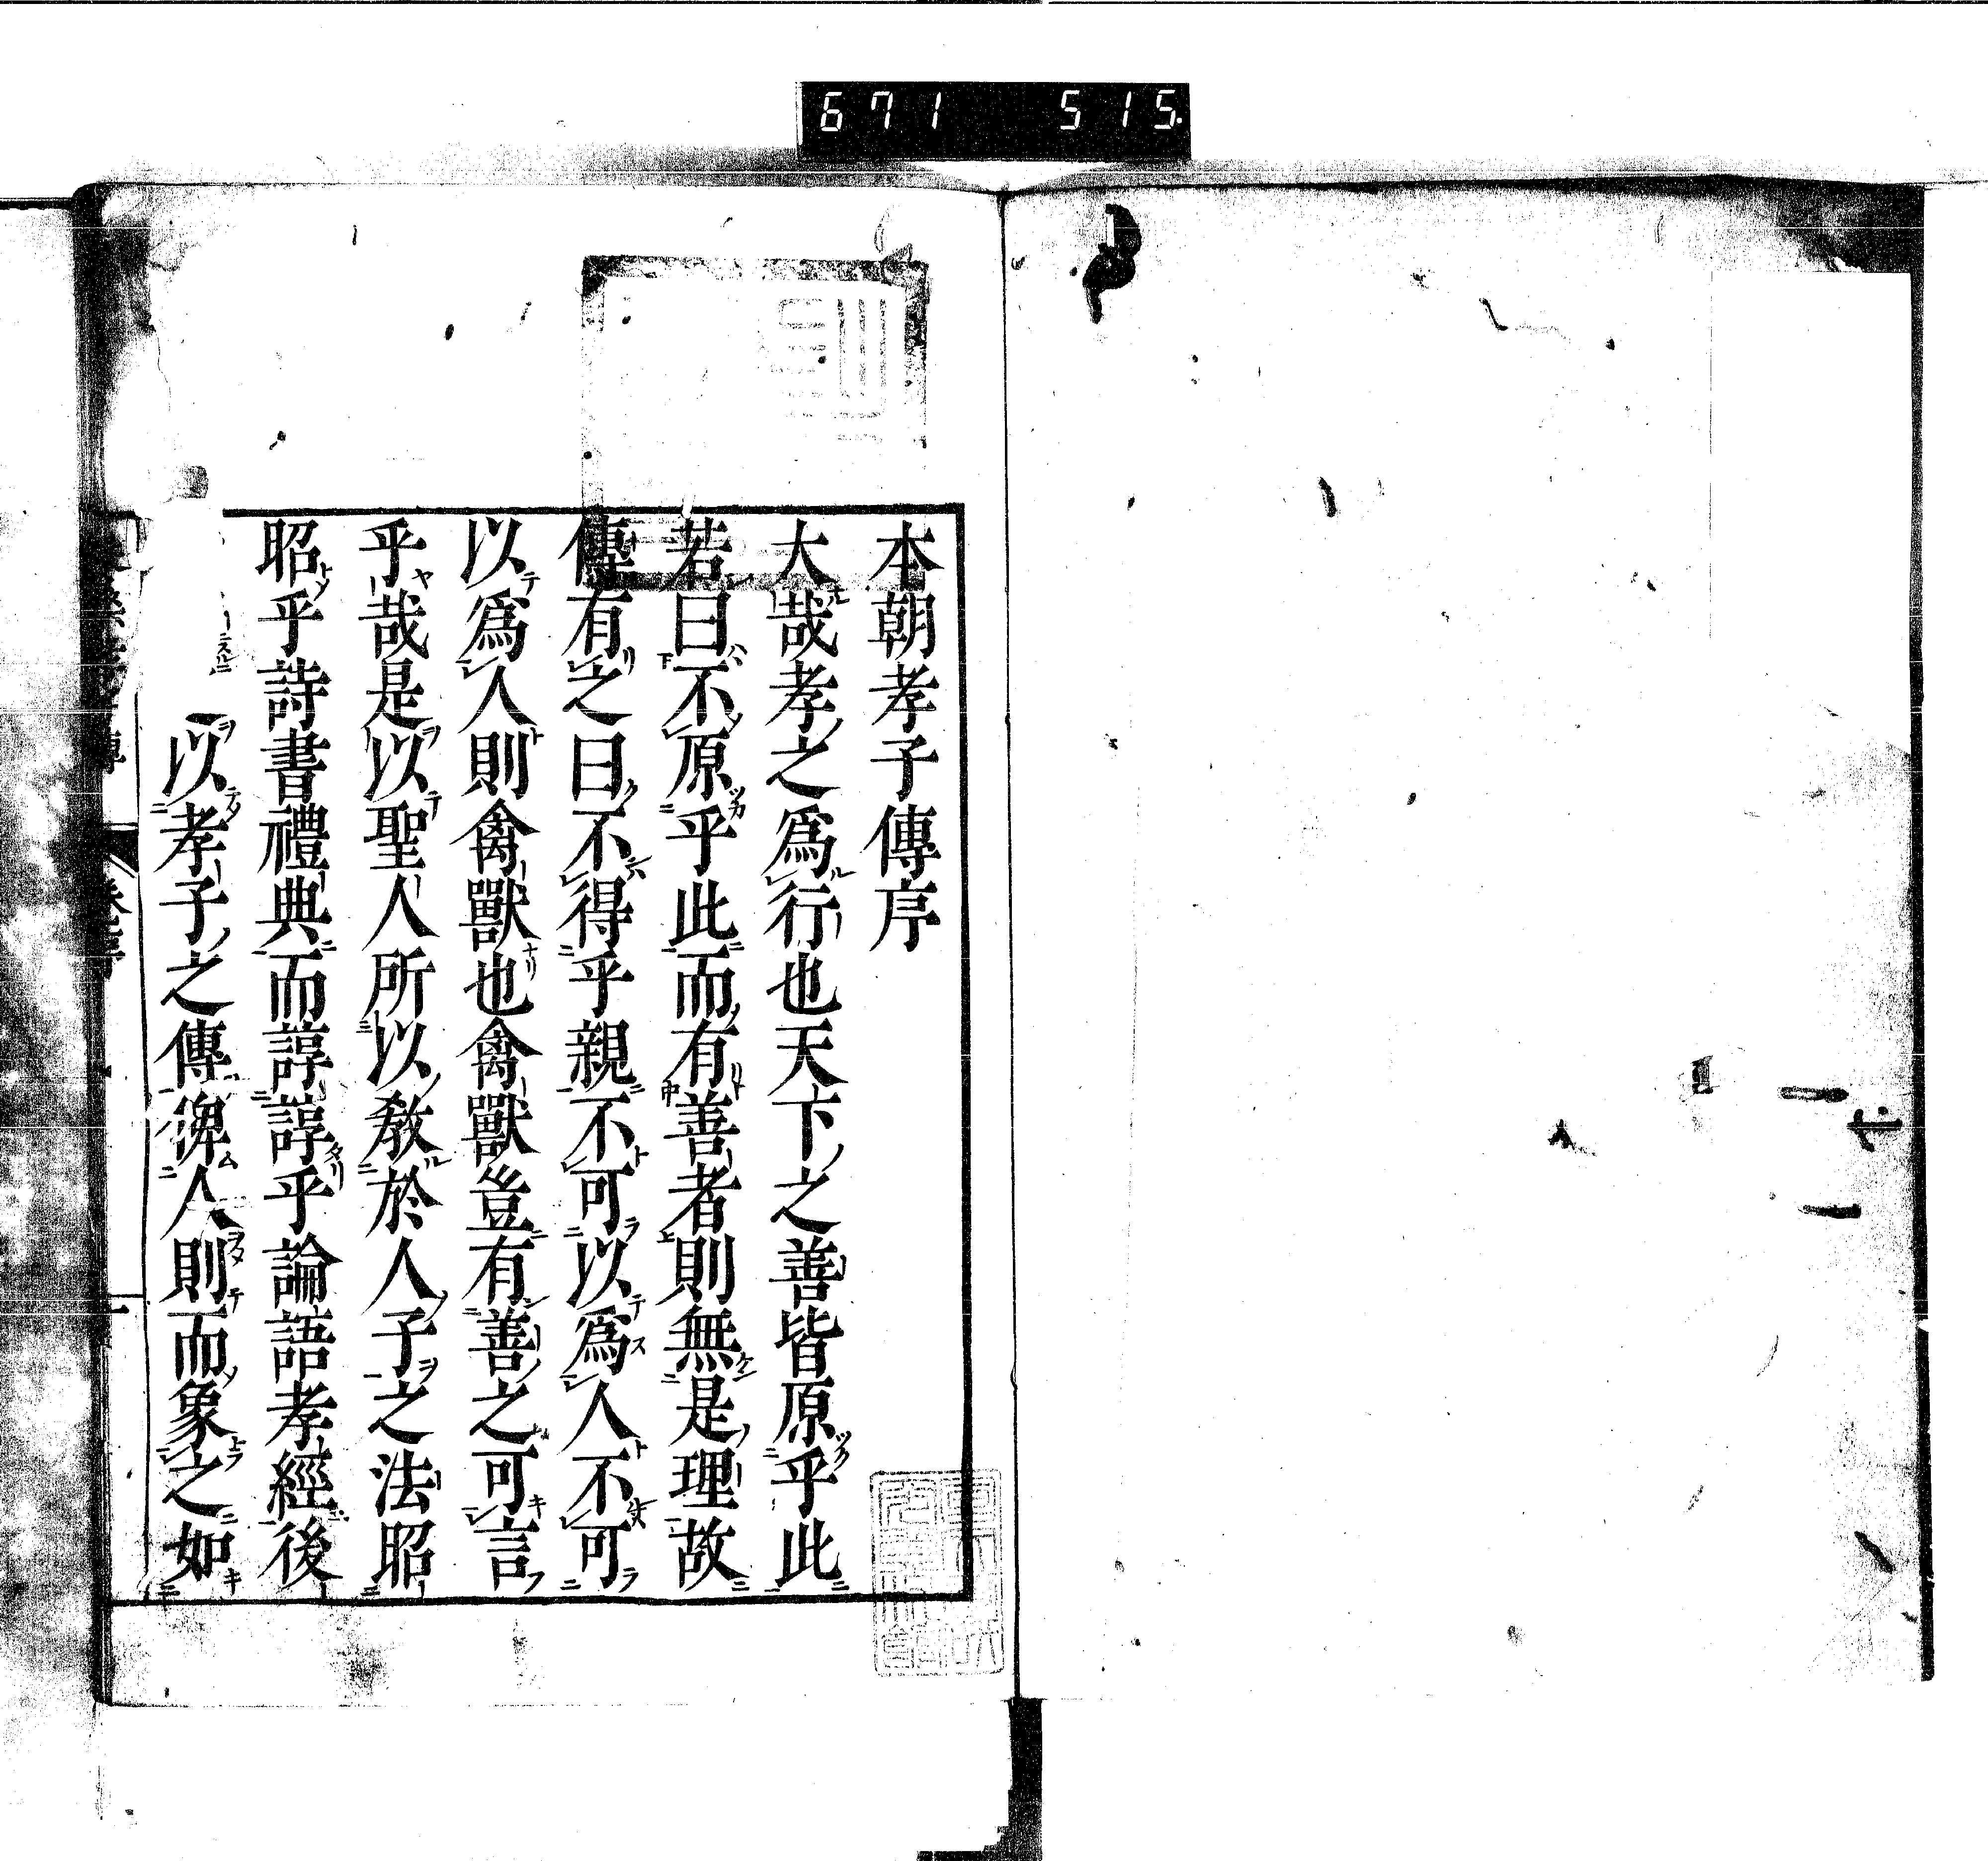 671 515
本朝孝子傳序
大哉孝之爲行也天下之善皆原乎此
若曰不原乎此而有善者則無是理故
傳有之曰不得乎親不可以爲人不可
以爲人則禽獸也禽獸豈有善之可言
乎哉是以聖人所以敎於人子之法昭
昭乎詩書禮典而諄諄乎論語孝經後
以孝子之傳俾人則而象之如